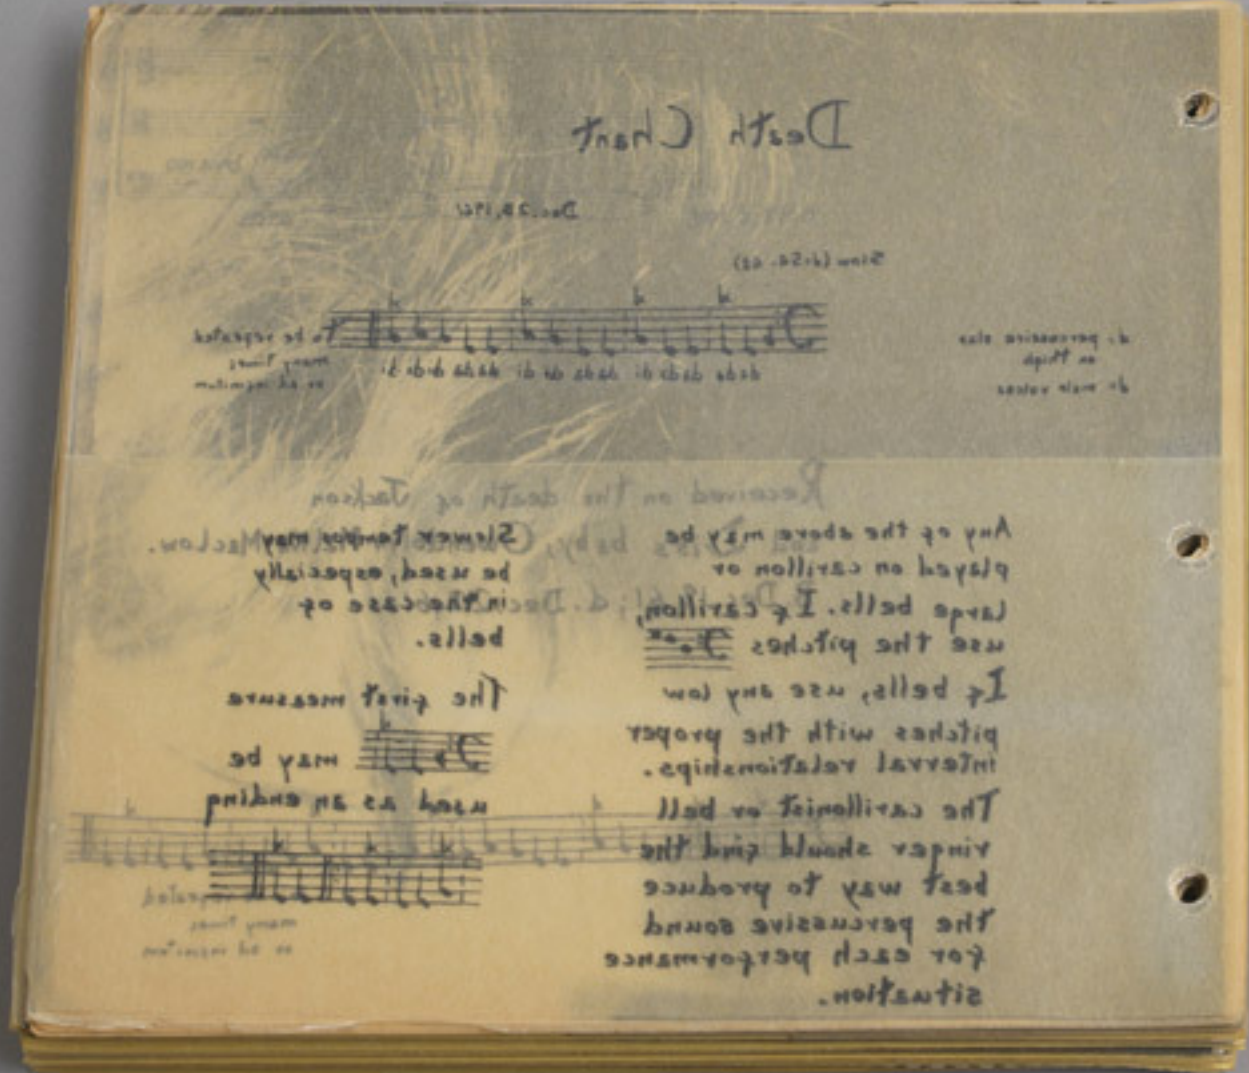 Death Chant
Dec. 23, 1961
Slow
percussive slap
on thigh
male voices
dada dadada di do dada di dadada dido di
to be repeated
many times
or ad infinitum
Received on the death of Jackson
and Iris's baby, MacLow.
Any of the above may be
played on carillon or
large bells. If carillon,
use the pitches
If bells, use any low
pitches with the proper
interval relationships.
The carillonist or bell
ringer should find the
best way to produce
the percussive sound
for each performance
situation.
Slower tempos may
be used, especially
in the case of
bells.
The first measure
may be
used as an ending
repeated
many times
or ad infinitum